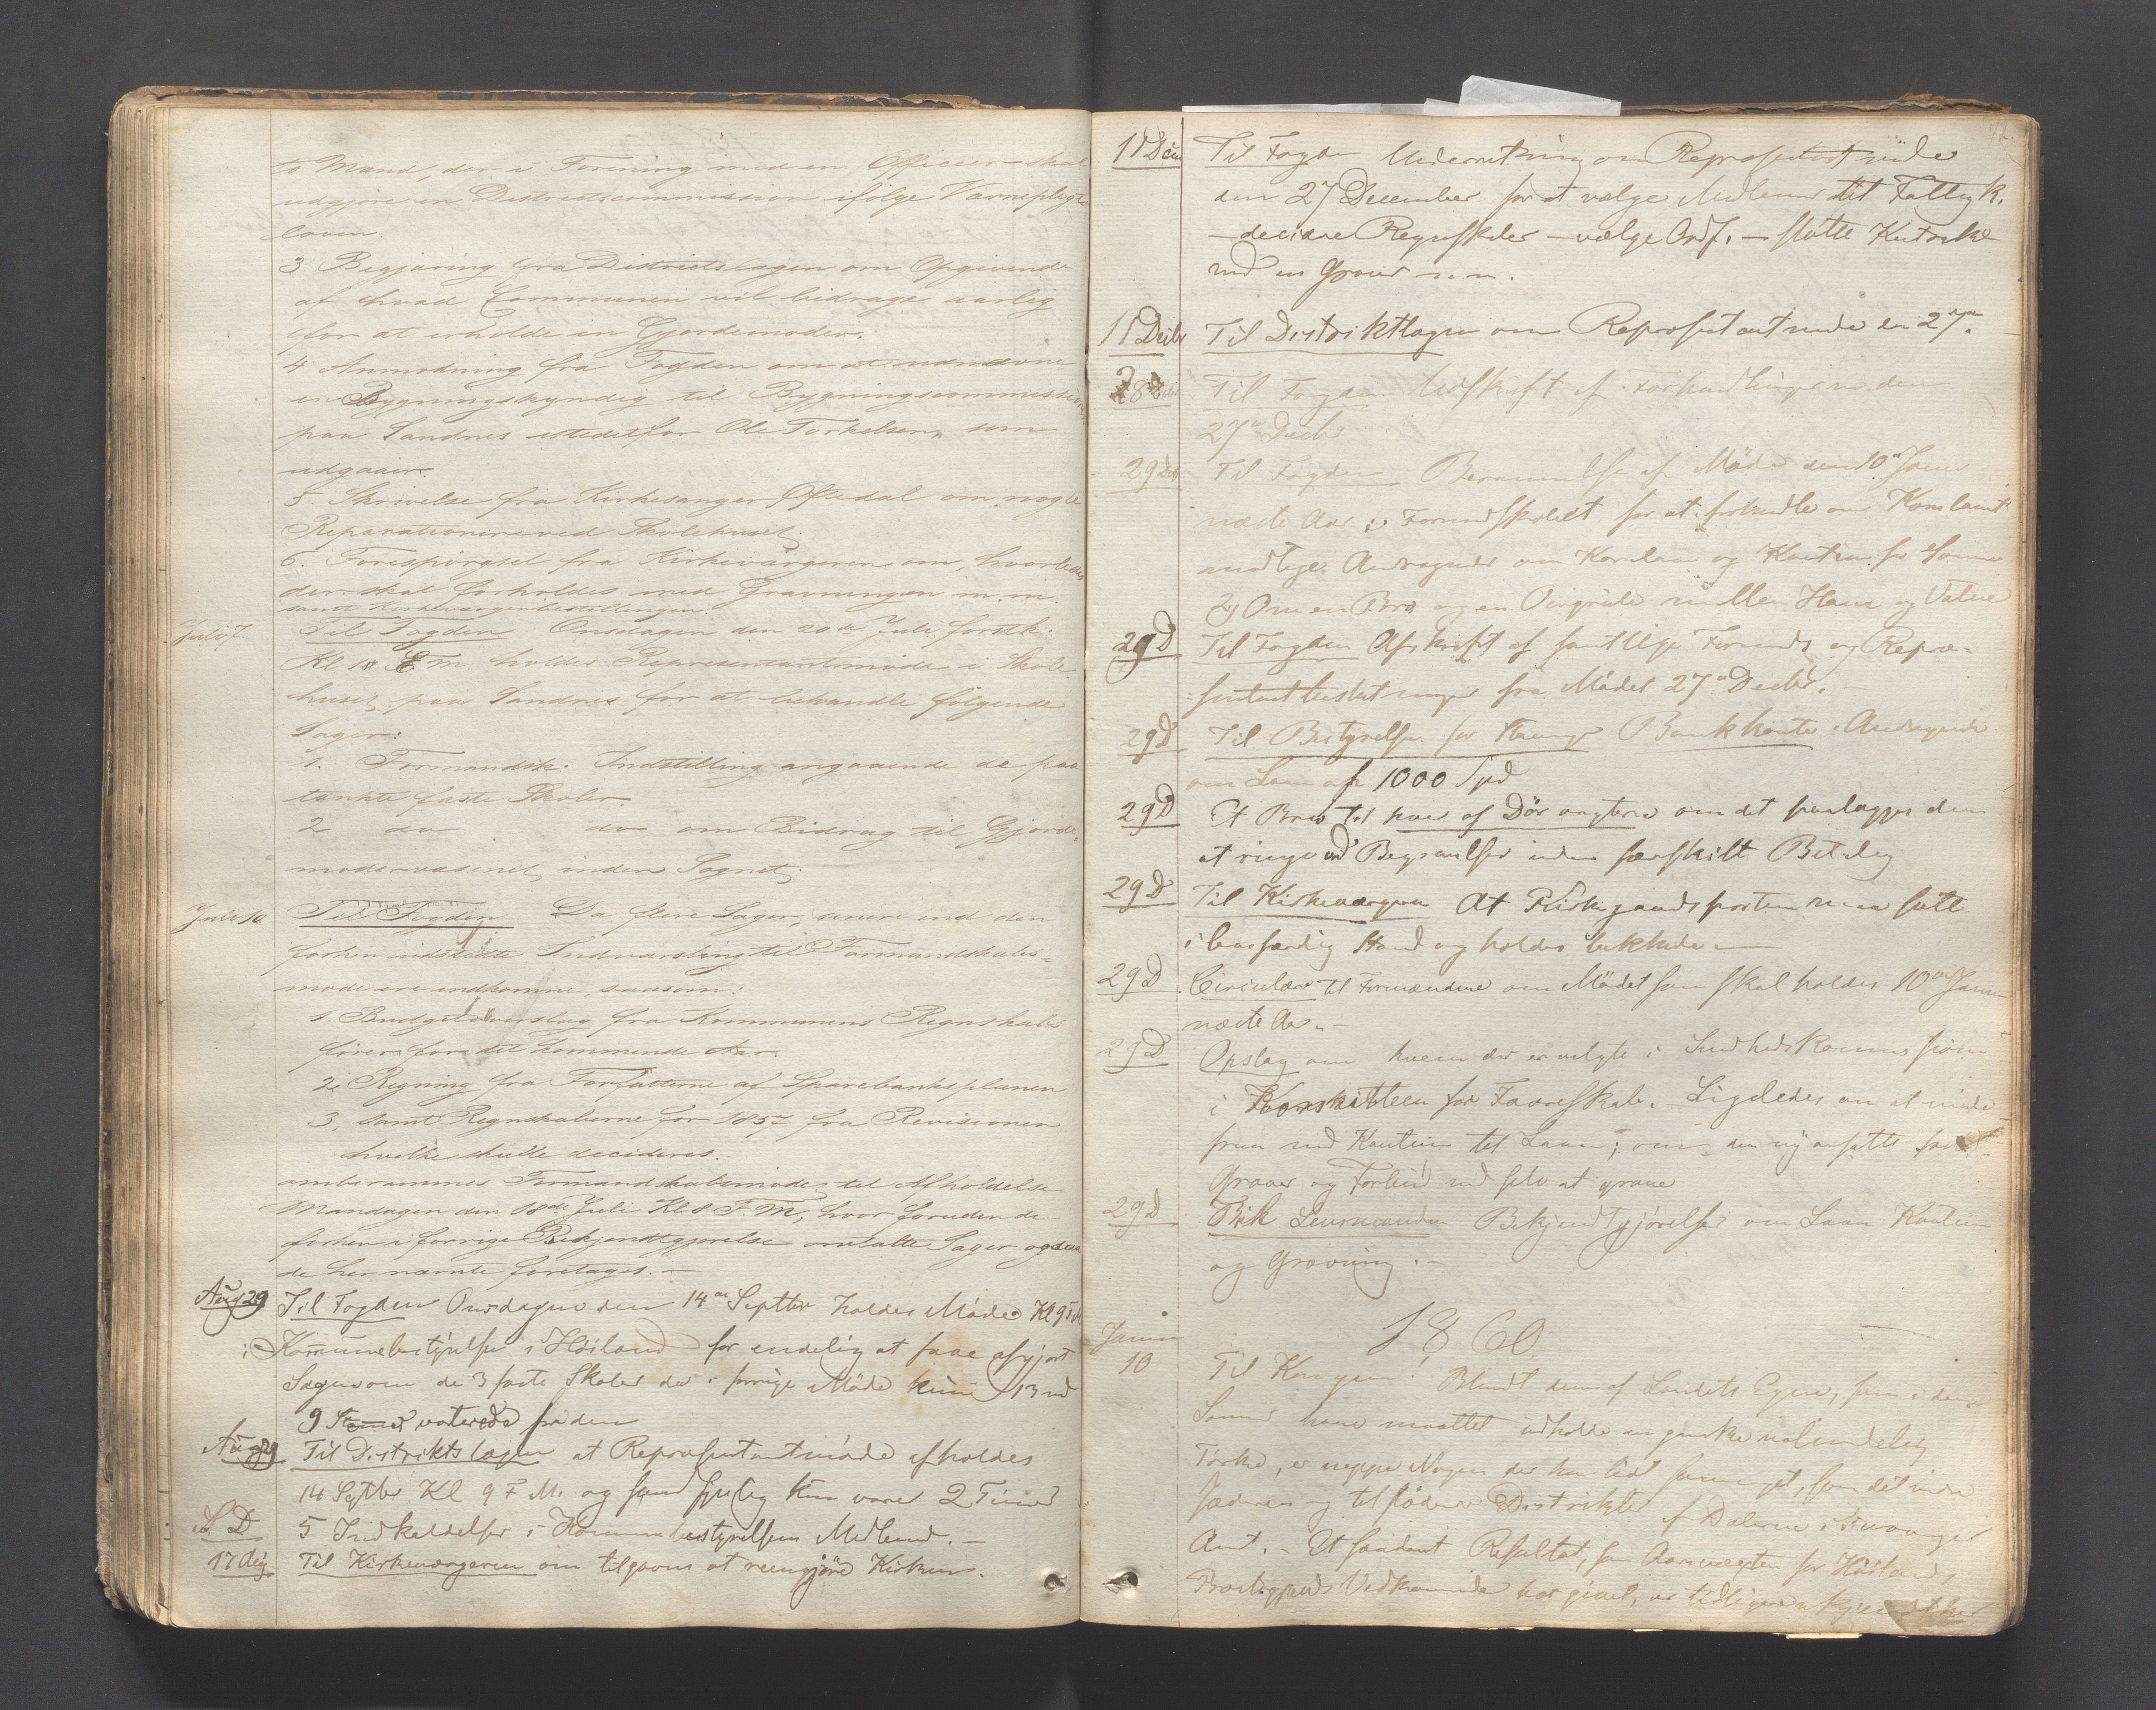 to Mænd, der i Forening med en Officeer skal
udgjøre en Districtscommission ifølge Værnepligts
loven.
3 Begjæring fra Districtslægen om Opgivende
af hvad Communen vil bidrage aarlig
for at erholde en Gjordemoder.
4 Anmodning fra Fogden om at udnævne
en Bygningskyndig til Bygningscommissionen
paa Sandnes istedetfor Ole Torkelsen, som
udgaaer.
5 Skrivelse fra Kirkesanger Østedal om nogle
Reparationer ved Skolehuset.
6. Forespørgsel fra Kirkeværgeren om, hvorledes
der skal forholdes med Gravningen m.m.
samt Kirkeværgerbestillingen.
Juli 7. Til Fogden Onsdagen den 20de Juli førstk.
Kl 10 F.m. holdes Repræsentantmøde i Skole
huset paa Sandnes for at behandle følgende
Sager:
1. Formandsk. Indstilling angaaende de paa
tænkte faste Skoler.
2 do do om Bidrag til Gjorde-
modervæsenet inden Sognet.
Juli 10 Til Fogden Da flere Sager, senere end den
forhen udstedte Indvarsling til Formandskabs-
møde ere indkomne, saasom:
1 Budgetoverslag fra Kommunens Regnskabs
fører for det kommende Aar.
2. Regning fra Forfatterne af Sparebanksplanen
3. samt Regnskaberne for 1857 fra Revisionen
hvilke skulle decideres.
amberammes Formandskabsmøde til Afholdelse
Mandagen den 18de Juli Kl 8 F.M, hvor foruden de
forhen i forrige Bekjendtgjørelse omtalte Sager ogsaa
de her nævnte foretages.
Aug 29 Til Fogden Onsdagen den 14de Septbr holdes Møde Kl 9
i Kommunebestyrelsen i Høiland for endelig at faae afgjort
Sagen om de 3 faste Skoler der i forrige Møde kun 13 med
9 Stemer voterede for den
Aug 29 Til Distriktslægen at Repræsentantmøde afholdes
14 Septbr Kl 9 F M. og kun varer 2 Timer
S. D 5 Indkaldelser i Kommunebestyrelsens Medlemd.
17 Aug. Til Kirkeværgeren om tilgavns at reengjøre Kirken.
11 Decb Til Fogden Underretning om Repræsentantmøde
den 27 December for at vælge Medlemer til Fattigk.
- decidere Regnskaber - vælge Ordf. - slutte Kontrakt
med en Graver m. m.
11 Decbr Til Distriktlægen om Repræsentantmøde den 27de.
28 Til Fogden Udskrift af Forhandlingerne den
27de Decbr
29 Dcb Til Fogden Berammelse af Møde den 10de Janu
næste Aar i Formandskabet for at forhandle om Kornlaant
modtage Andragender om Kornlaan og Kaution for samme
2) Om en Bro og en mellem Hana og Vatne
29 D Til Fogden Afskrift af samtlige Formands og Repræ-
sentantbeslutninger fra Mødet 27de Decbr.
29 D Til Bestyrelsen for Stavanger Bankkonto Andragende
om Laan af 1000 Spd
29 D Et Brev til hver af om det paalægges dem
at ringe ved Begravelser uden særskilt Betaling
29 D Til Kirkeværgeren At Kirkegaardsporten maa sættes
i brugfærdig Stand og holdes lukket
29 D Circulære til Formændene om Mødet som skal holdes 10de Januar
næste Aar.
29 D Opslag om hvem der er valgte i Sundhedskommissionen
i for Faareskab. Ligeledes om at møde
frem med Kaution til Laan; om den nyansatte
Graver og Forbud ved selv at grave
29 D Lensmanden Bekjendtgjørelser om Laan Kaution
og Gravning.
1860
Januar
10 Til Kongen! Blandt dem af Landets Egne, som i denne
Sommer have maattet udholde en ganske ualmindelig
Tørke, er neppe Nogen der har lidt saameget, som det indre
Jæderen og tilstødende Distrikter af Dalerne i Stavanger
Amt. - Et saadant Resultat, som Aarsvæxten for Høilands
Præstegjelds Vedkommende har givet, er tidligere